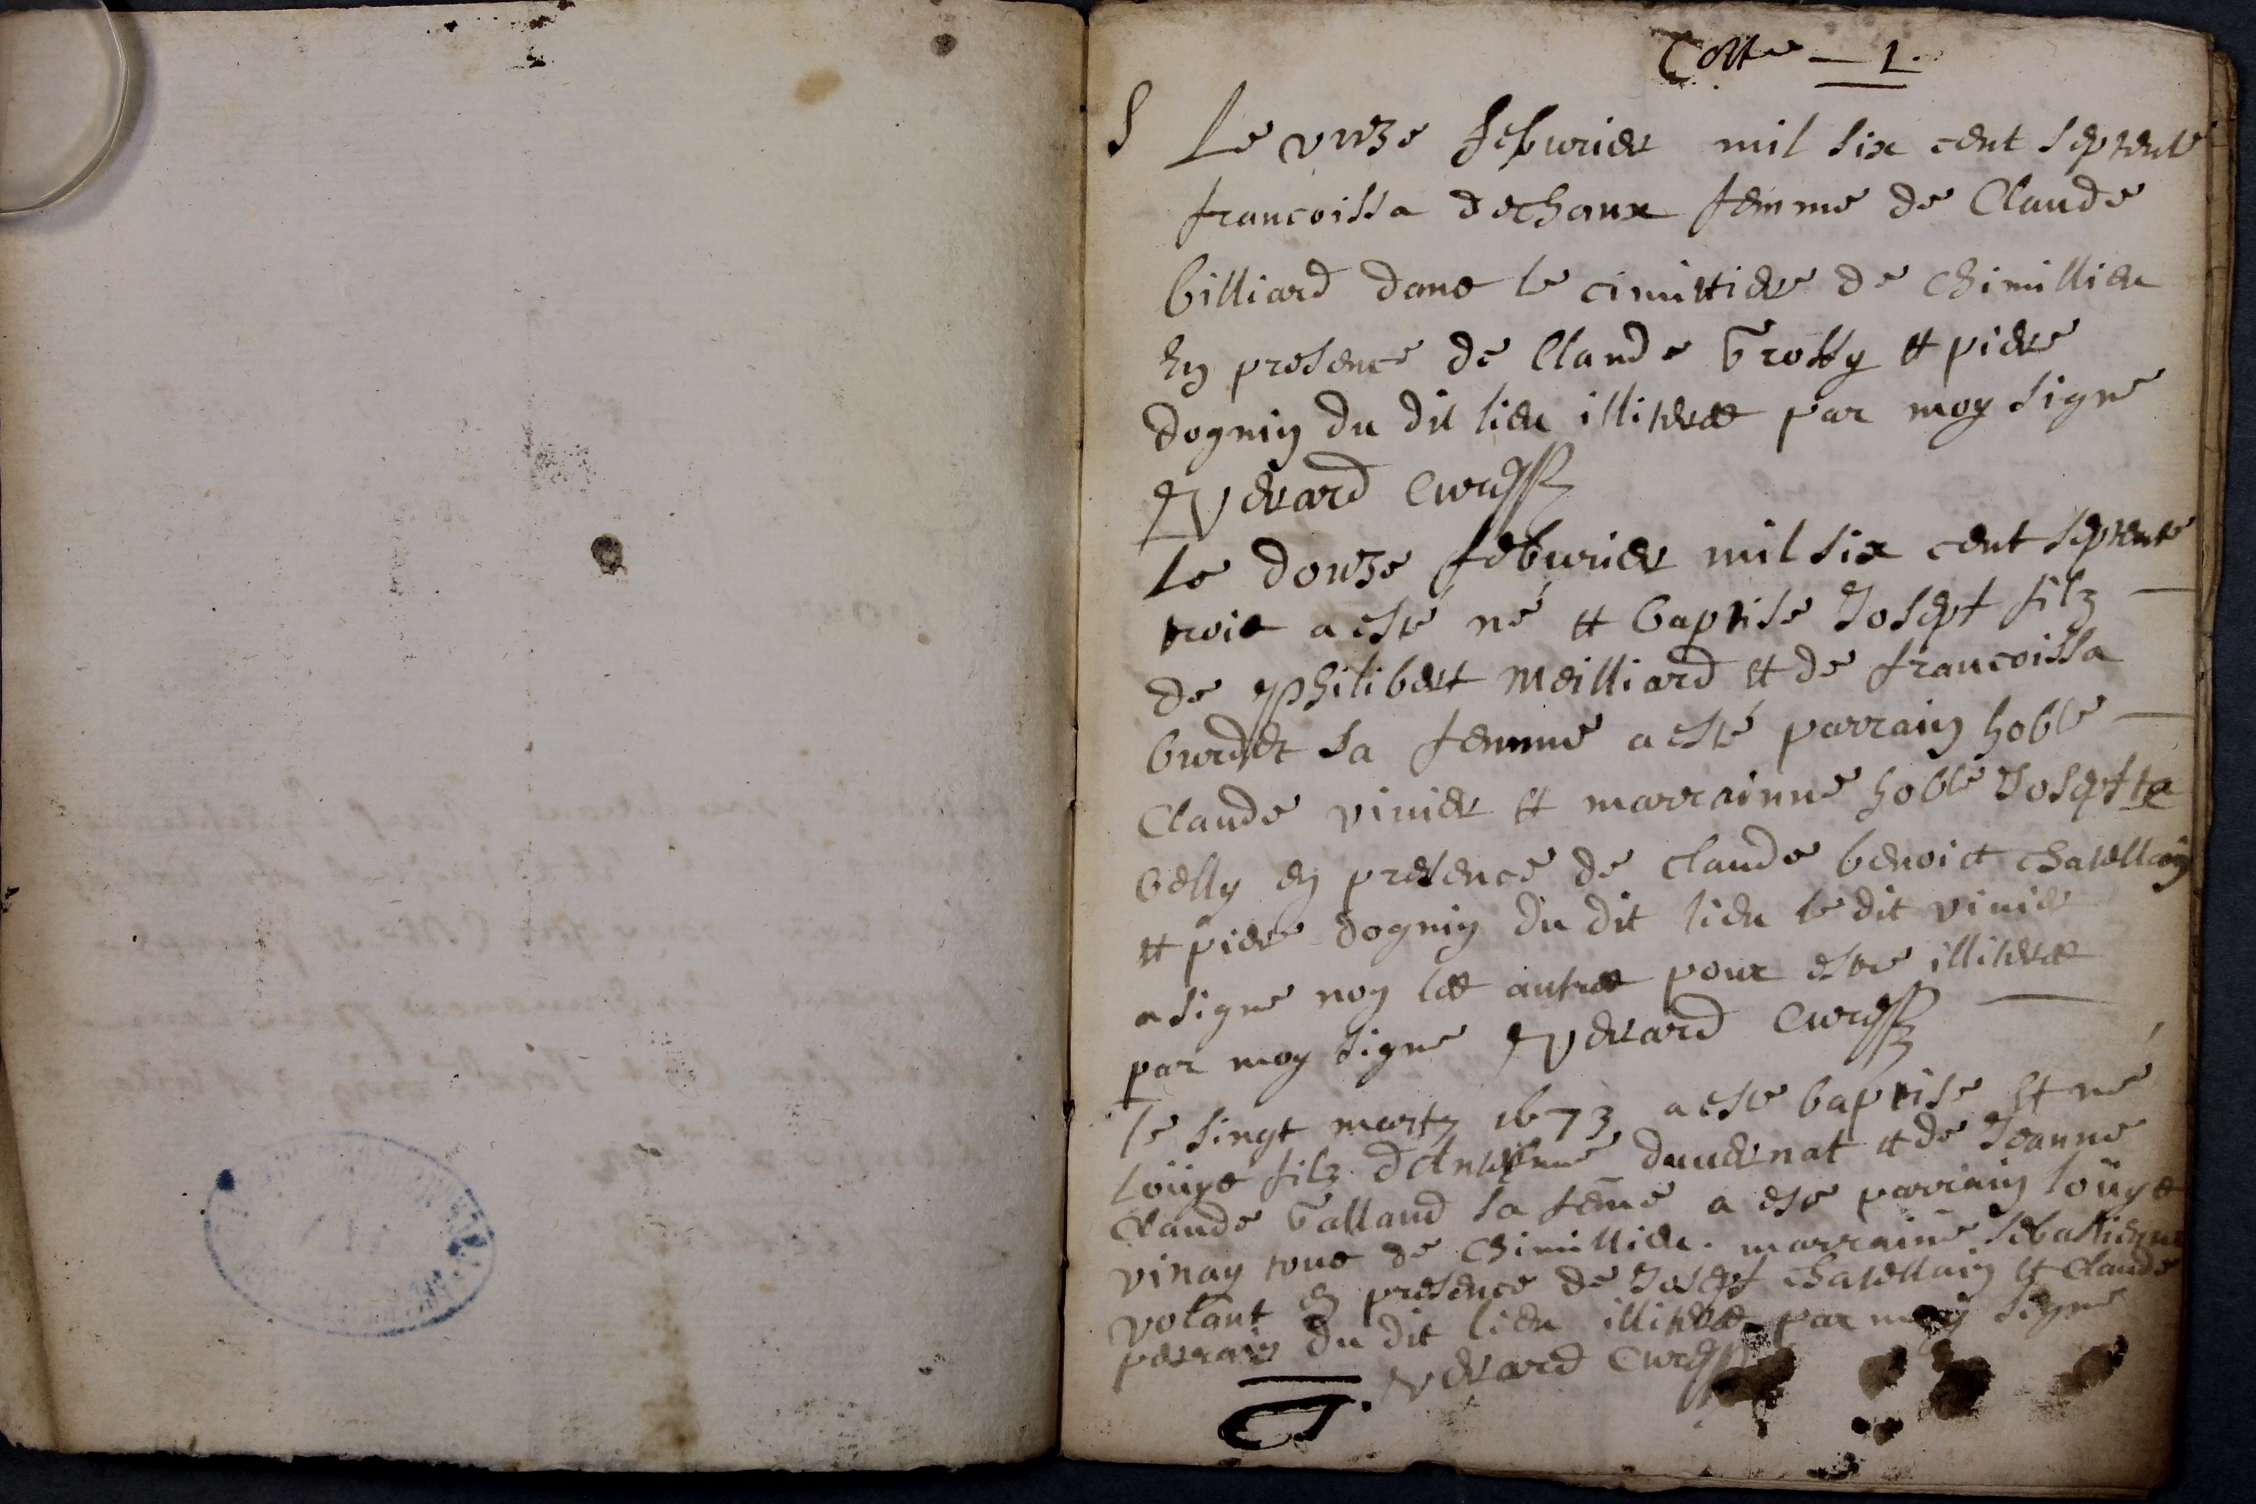 Cotte — 1.
S Le unze feburier mil six cent septente
francoissa dechaux femme de Claude
billiard dans le cimittiere de Chimillieu
En presence de Claude Grossy et piere
dognin du dit lieu illiteres par moy signe
Verard Cure
Le douze feburier mil six cent septente
trois a esté né et baptise Josept filz
de Philibert Meilliard et de francoissa
burdet sa femme a esté parrain hoble
Claude vivier et marrainne hoble Joseptta
belly en presence de claude benoict chatellain
et piere dognin du dit lieu le dit vivier
a signe non les autres pour estre illiteres
par moy signe Verard Cure
le singt marts 1673 a este baptise et né
loüys filz d'Antelme dauvernat et de Jeanne
Claude Galland sa feme a este parrain loüys
vinay tous de Chimillieu. marraine sebastienne
volant en presence de Josept chatellain et Claude
perrain du dit lieu illiteres par moy signe
Verard Cure